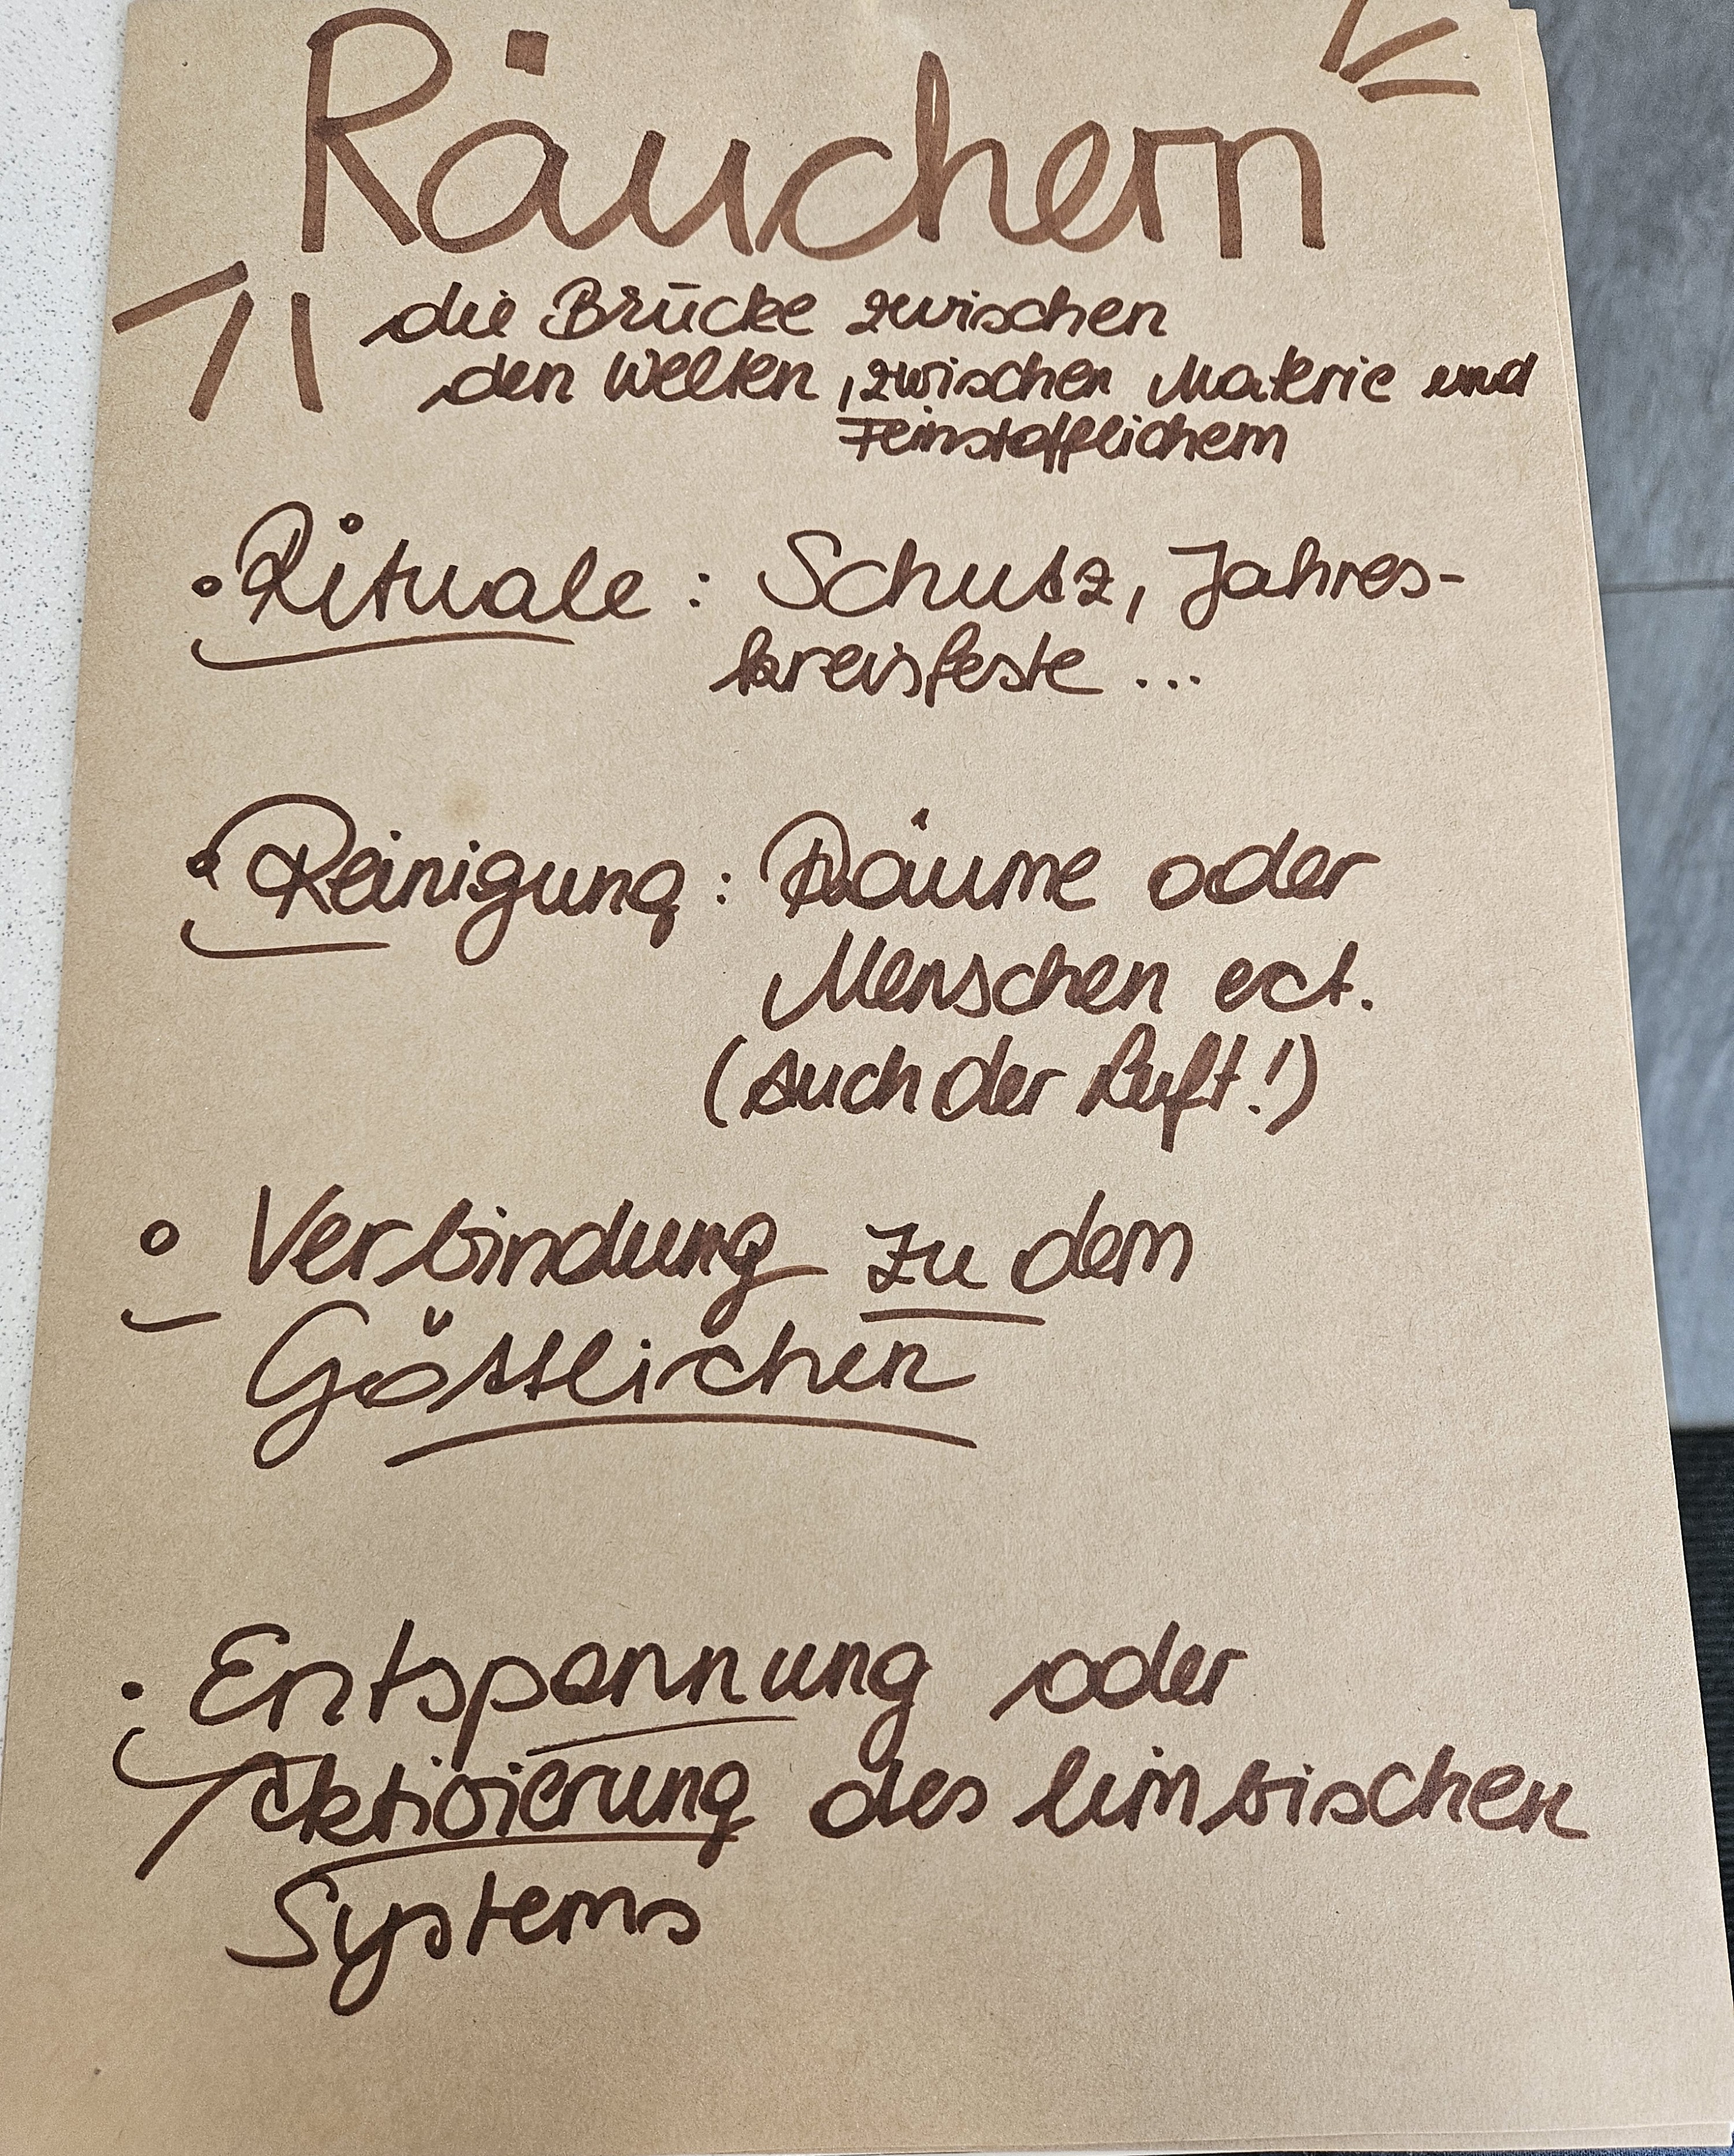 Räuchern
die Brücke zwischen
den Welten, zwischen Materie und
Feinstofflichem
• Rituale : Schutz, Jahres-
kreisfeste ...
• Reinigung : Räume oder
Menschen ect.
(auch der Luft!)
• Verbindung zu dem
Göttlichen
• Entspannung oder
Aktivierung des limbischen
Systems